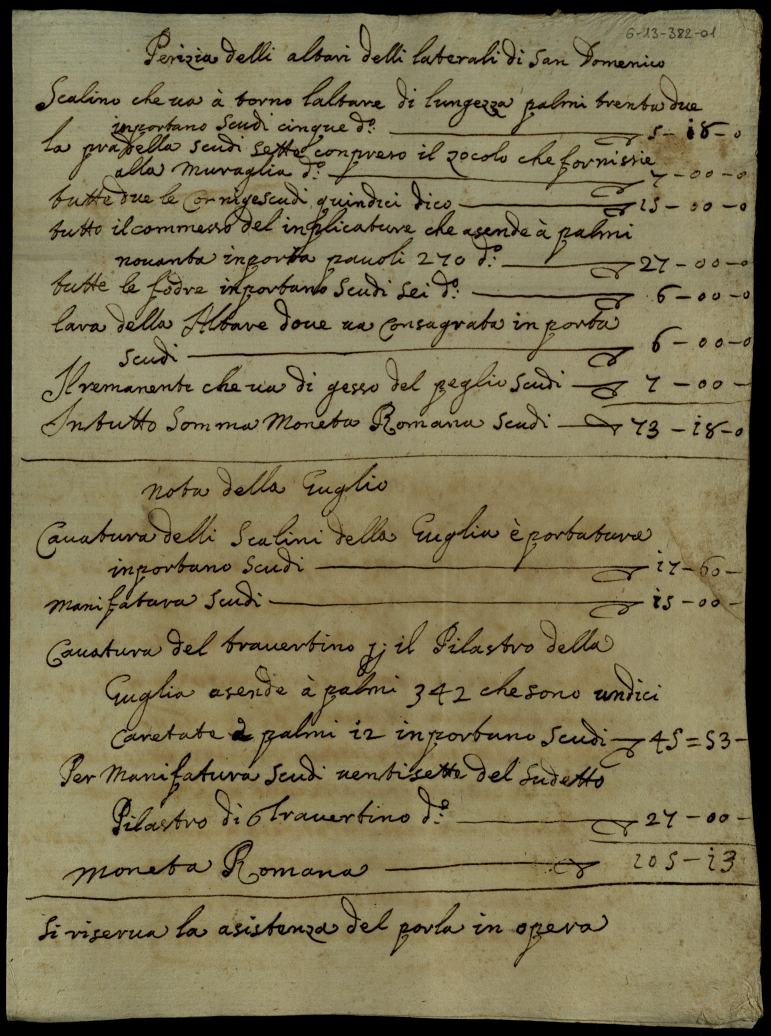 6-13-382-01
Perizia delli altari delli laterali di San Domenico
Scalino che ua à torno laltare di lungezza palmi trenta due
inportano Scudi cinque d.º 5-18-0
la pradella scudi sette conpreso il zocolo che fornissie
alla muraglia d.º 7-00-0
tutte due le cornige scudi quindici dico 15-00-0
tutto il commesso del inplicature che asende à palmi
nouanta inporta pauoli 270 d.º 27-00-0
tutte le fodre inportano Scudi Sei d.º 6-00-0
lara della Altare doue ua Consagrata inporta
scudi 6-00-0
Il remanente che ua di gesso del peglio scudi 7-00-
In tutto Somma Moneta Romana scudi 73-18-0
nota della Guglia
Cauatura delli Scalini della Guglia è portature
inportano scudi 17-60-
manifatura scudi 15-00-
Cauatura del trauertino p; il Pilastro della
Guglia asende à palmi 342 che sono undici
caretate palmi 12 inportano scudi 45=53-
Per Manifatura scudi uentisette del sudetto
Pilastro di Trauertino d.º 27-00-
moneta Romana 105-13
Si riserua la asistenza del porla in opera